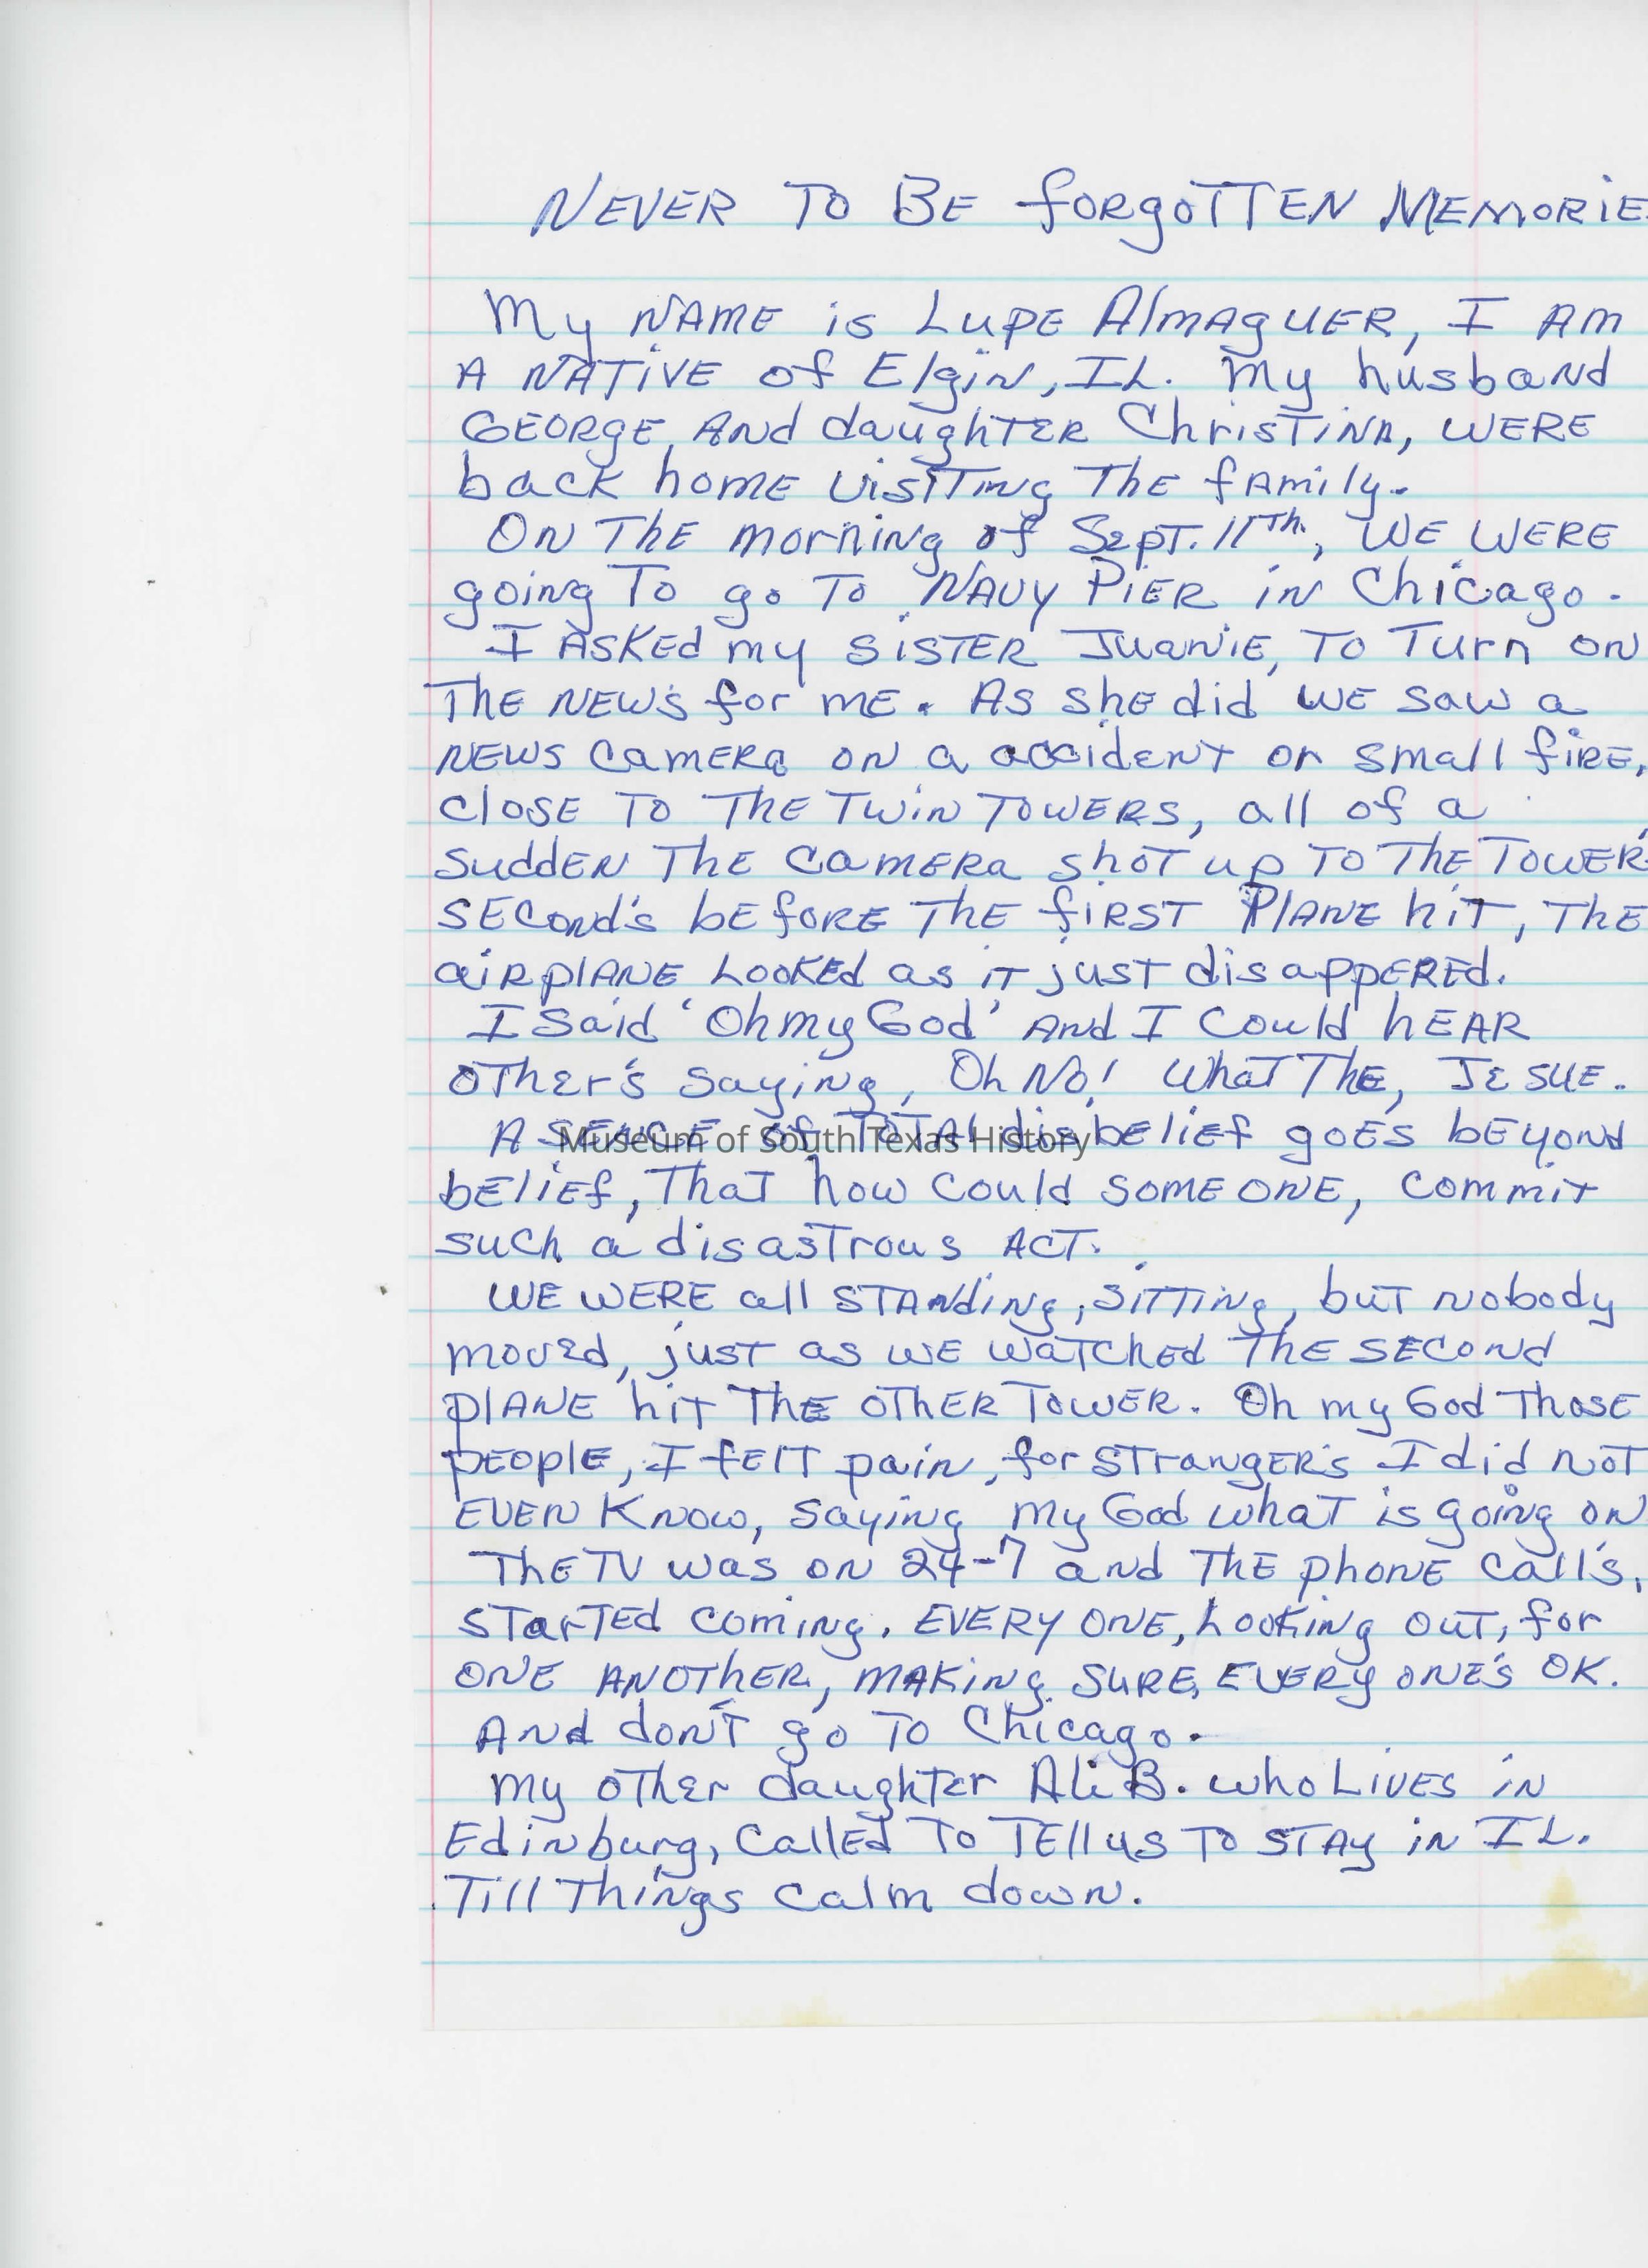 NEVER TO BE forgOTTEN MEMORIE
My NAME is LupE AlmAgUER, I AM
A NATiVE of Elgin, IL. My husband
GEORgE, And daughTER ChrisTiNA, WERE
back homE visiTing ThE fAmily.
ON ThE morning of SepT. 11Th., WE WERE
going To go To NAVy PiER in Chicago.
I ASKEd my SiSTER JuaniE, To Turn on
ThE NEW's for mE. As shE did WE saw a
NEWS CamERa on a accident or small fiRE,
closE To ThE Twin TowERs, all of a
suddEN ThE CamERa shoT up To ThE TowER
SEcond's bEfoRE ThE fiRST PlANE hiT, ThE
aiRplANE LooKEd as iT jusT disappEREd.
I Said 'Oh my God' And I Could hEAR
OThEr's saying, Oh No! WhaT ThE, JESUE.
A SENCE of ToTAl disbelief goEs bEyond
bElief, ThaT how Could somE onE, commiT
such a disasTrous ACT.
WE WERE all STANding, siTTing, buT nobody
movEd, jusT as WE WaTchEd ThE SEcond
plANE hiT ThE oThER TowER. Oh my God ThosE
pEoplE, I fElT pain, for STrangER's I did noT
EVEN Know, saying my God whaT is going on
ThE TV was on 24-7 and ThE phonE call's,
STarTEd coming. EVERy ONE, LooKing ouT, for
ONE ANOThER, mAKing SURE, EVERy onE's OK.
And don'T go To Chicago.
My oThEr daughTEr Ali B. who LivEs in
Edinburg, CallEd To TEll us To STAy in IL.
Till Things calm down.
Museum of South Texas History